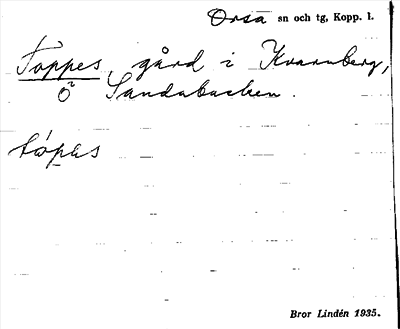 Orsa sn och tg, Kopp. l.
Toppes, gård i Kvarnberg,
Ö Sandabacken.
tópas
Bror Lindén 1935.